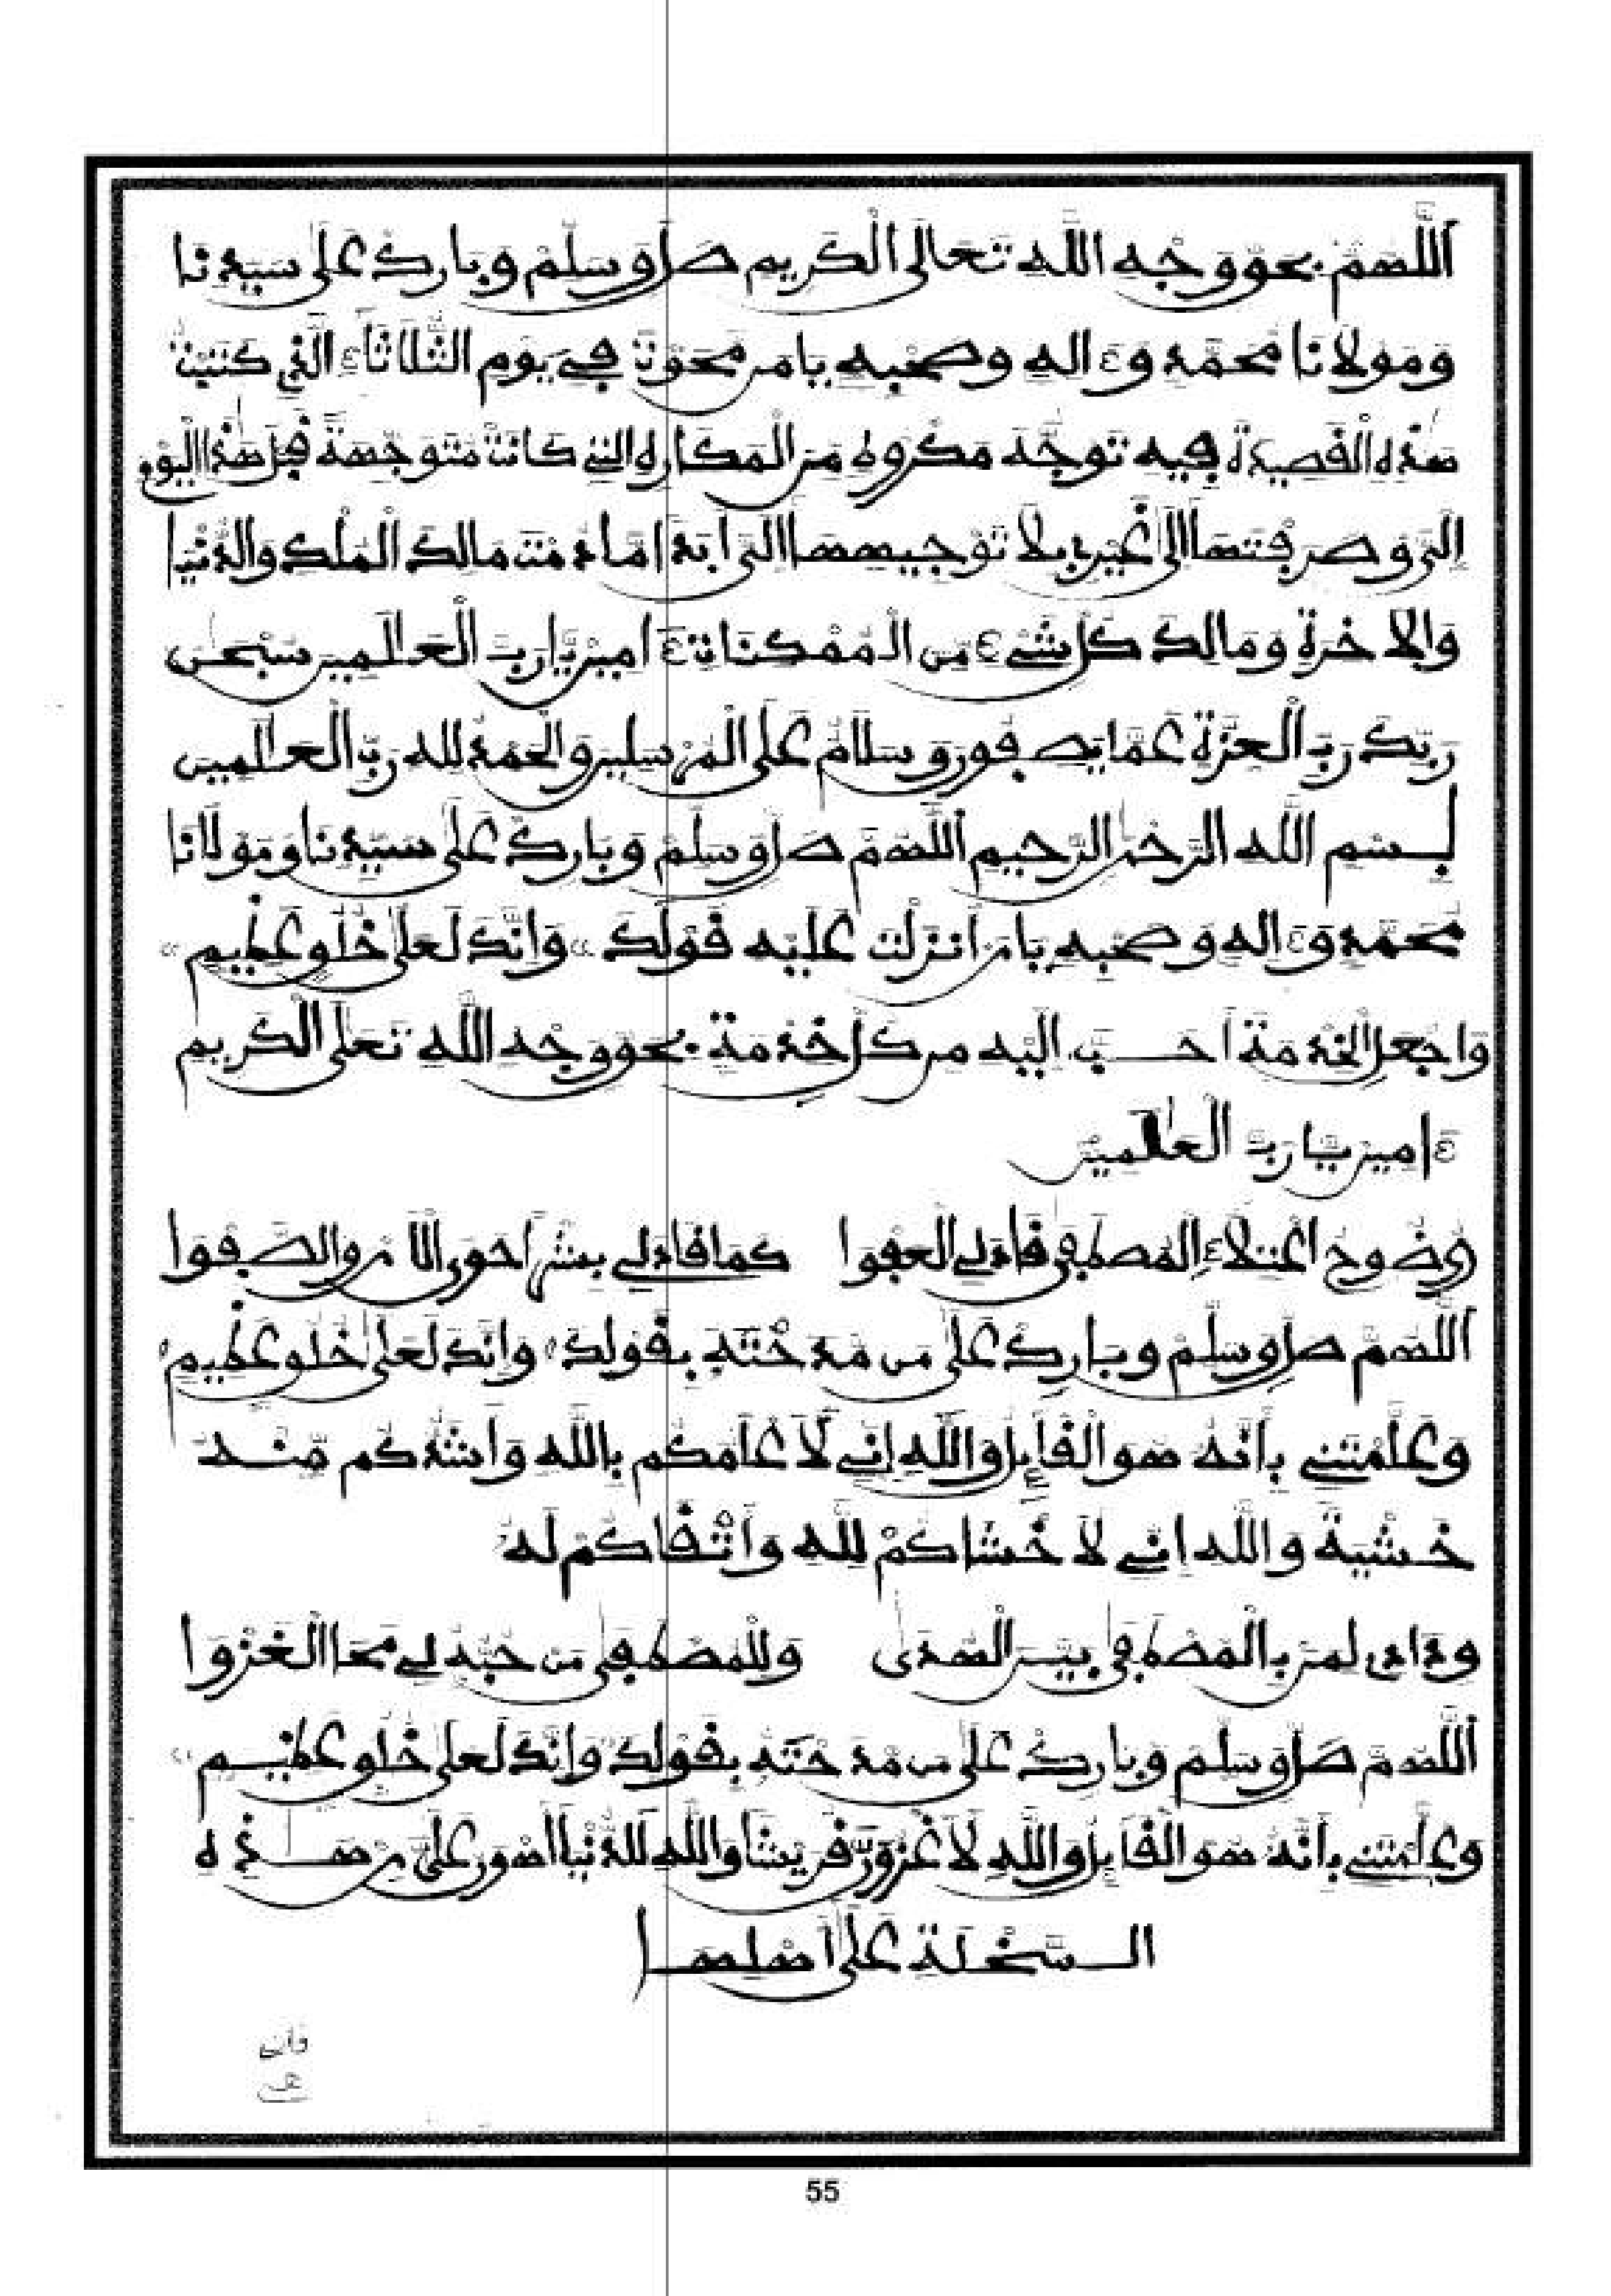 اللَّهُمَّ بحق وجه الله تعالى الْكريم صل وسلّمْ وبارك على سيدنا
ومولانا محمّد وءاله وصحبه يا من محوت في يوم الثّلاثاء الّذي كتبت
هذه القصيدة فيه توجّه مكروه من الْمكاره التي كانت متوجّهة قبل هذا الْيوم
إليّ وصرفتها إلى غيري بلا توْجيهها إليّ أبدا ما دمت مالك الْملْك والدّنْيا
والاخرة ومالك كل شيْء من الْممْكنات ءامين يا رب الْعالمين سبْحن
ربّك ربّ الْعزّة عمّا يصفون وسلام على الْمرْسلين والْحمد لله ربّ الْعالمين
بسْم الله الرّحْمن الرّحيم اللَّهمّ صل وسلّمْ وباركْ على سيّدنا ومولانا
محمّد وءاله وصحْبه يا من أنزلْت عليْه قوْلك "وإنّك لعلى خلق عظيم"
واجْعل الْخدْمة أحبّ إليْه من كلّ خدْمة بحق وجْه الله تعلى الْكريم
ءامين يا ربّ الْعلمين
الْمصطفى قاد لي الْعفوا كما قاد لي والصّفوا
اللَّهمّ صل وسلّمْ وبارك على من مدحْته بقوْلك "وإنّك لعلى خلق عظيم"
وعلّمْتني بأنّه هو الْقائل والله إنّي لأعْلمكم بالله وأشدّكم منْه
خشْية والله إنّي لأخْشاكمْ لله وأتْقاكمْ له
بالْمصْطفى بيّن الْهدى وللْمصْطفى من حبّه لي محا الْغزْوا
اللَّهمّ صل وسلّم وبارك على من مدحْته بقوْلك "وإنّك لعلى خلق عظيم"
وعلّمْتني بأنّه هو الْقائل والله لأغْزونّ قريشا والله للدّنْيا أهْون على الله منْ هذه
السّخْلة على أهْلها
55